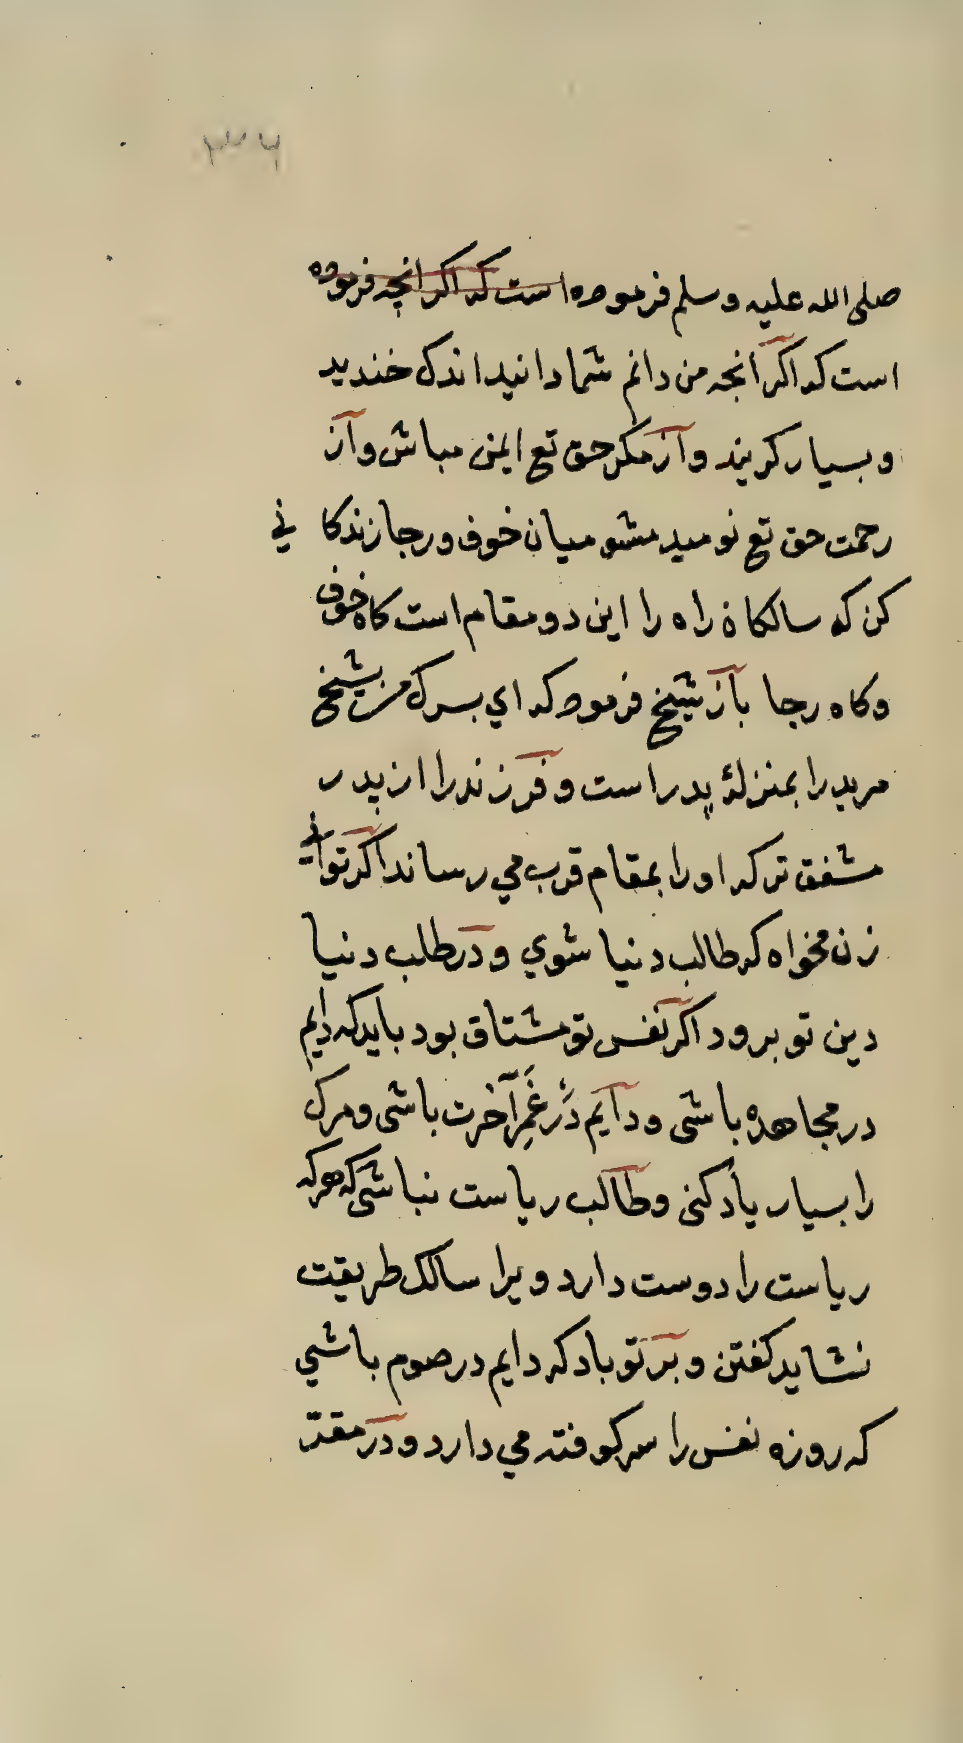 ۳۶
صلی الله علیه وسلم فرموده است که اکر انچه فرموده
است که اکر انجه من دانم شما دانید اندک خندید
وبسیار کریند واز مکر حق تع ایمن مباش واز
رحمت حق تع نومید مشو میان خوف ورجا زندکانی
کن که سالکان راه را این دو مقام است کاه خوف
وکاه رجا باز شیخ فرمود که ای بسرک من شیخ
مرید را بمنزلهٔ پدر است وفرزند را از پدر
مشفق تر که اورا بمقام قرب می رساند اکر توانی
زن مخواه که طالب دنیا شوي ودر طلب دنیا
دین تو برود اکر نفس تو مشتاق بود باید که دایم
در مجاهده باشی ودایم در غم آخرت باشی ومرک
را بسیار یاد کنی وطالب ریاست نباشی که هرکه
ریاست را دوست دارد ویرا سالک طریقت
نشاید کفتن وبر تو باد که دایم در صوم باشي
که روزه نفس را سرکوفته مي دارد ودر مقدّ